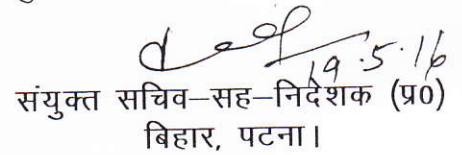 19.5.16
संयुक्त सचिव–सह–निदेशक (प्र0)
बिहार, पटना।